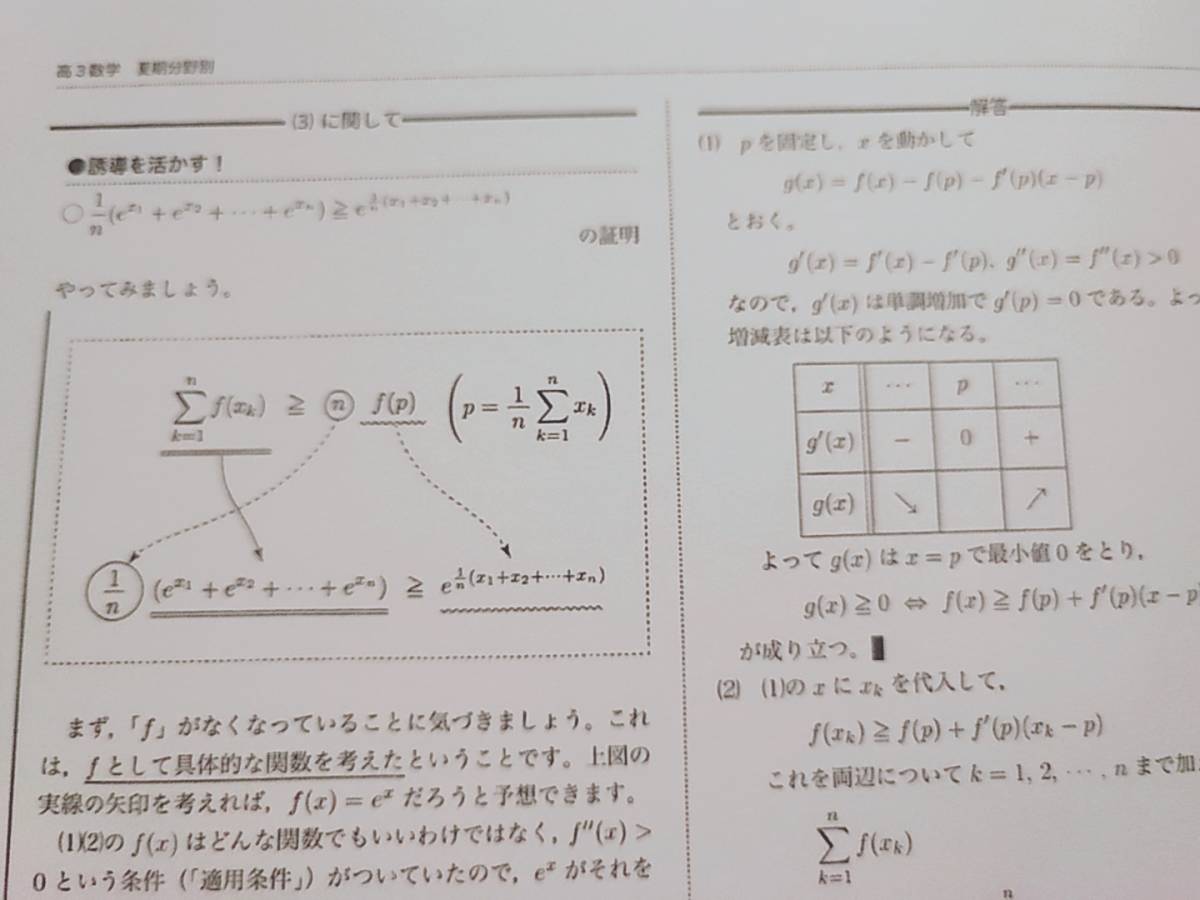 高3数学 夏期分野別
(3) に関して
●誘導を活かす！
○ 1/n (e^{x_1} + e^{x_2} + ⋯ + e^{x_n}) ≧ e^{1/n (x_1+x_2+⋯+x_n)}
の証明
やってみましょう。
∑_{k=1}^{n} f(x_k) ≧ n f(p) (p = 1/n ∑_{k=1}^{n} x_k)
1/n (e^{x_1} + e^{x_2} + ⋯ + e^{x_n}) ≧ e^{1/n (x_1+x_2+⋯+x_n)}
まず，「f」がなくなっていることに気づきましょう。これ
は，f として具体的な関数を考えたということです。上図の
実線の矢印を考えれば，f(x) = e^x だろうと予想できます。
(1)(2)の f(x) はどんな関数でもいいわけではなく，f''(x) >
0 という条件（「適用条件」）がついていたので，e^x がそれを
解答
(1) p を固定し，x を動かして
g(x) = f(x) − f(p) − f'(p)(x − p)
とおく。
g'(x) = f'(x) − f'(p)，g''(x) = f''(x) > 0
なので，g'(x) は単調増加で g'(p) = 0 である。よっ
増減表は以下のようになる。
x ⋯ p ⋯
g'(x) − 0 +
g(x) ↘ ↗
よって g(x) は x = p で最小値 0 をとり，
g(x) ≧ 0 ⇔ f(x) ≧ f(p) + f'(p)(x − p)
が成り立つ。
(2) (1)の x に x_k を代入して，
f(x_k) ≧ f(p) + f'(p)(x_k − p)
これを両辺について k = 1, 2, ⋯ , n まで加
∑_{k=1}^{n} f(x_k)
n